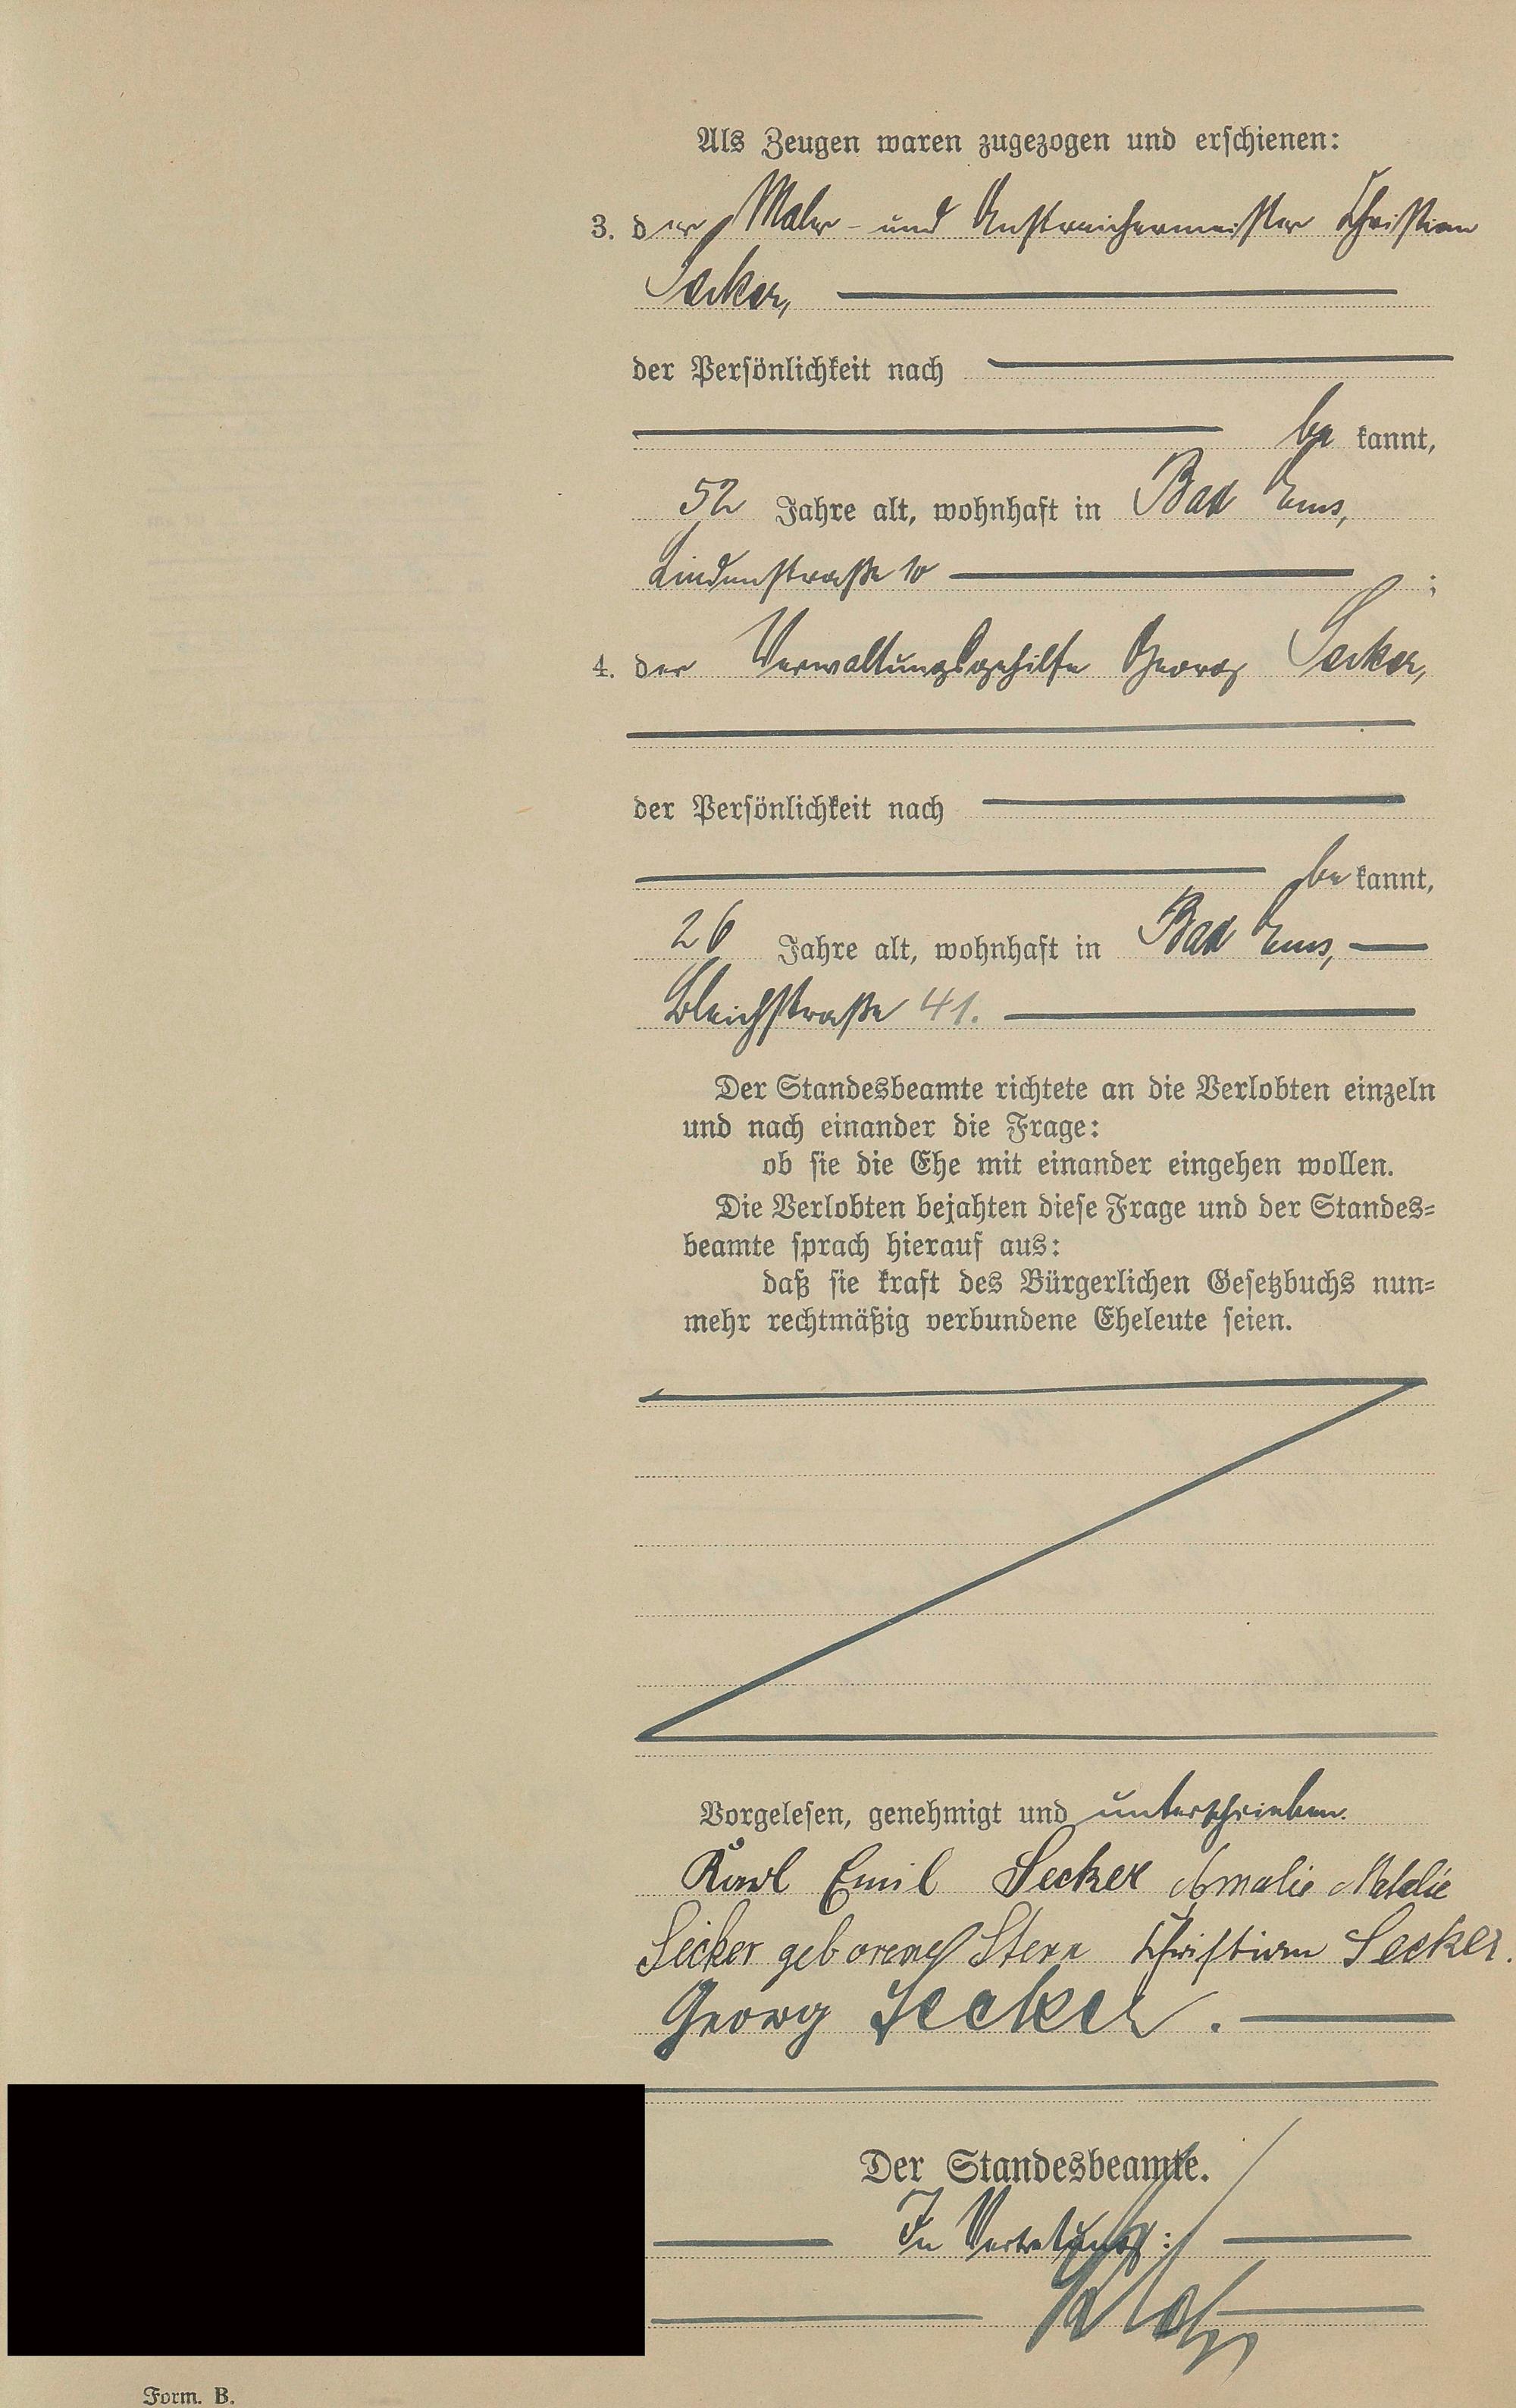 Als Zeugen waren zugezogen und erschienen:
3. der Maler- und Anstreichermeister Christian
Secker,
der Persönlichkeit nach
be kannt,
52 Jahre alt, wohnhaft in Bad Ems,
Lindenstraße 10 ;
4. der Verwaltungsgehilfe Georg Secker,
der Persönlichkeit nach
be kannt,
26 Jahre alt, wohnhaft in Bad Ems,
Bleichstraße 41.
Der Standesbeamte richtete an die Verlobten einzeln
und nach einander die Frage:
ob sie die Ehe mit einander eingehen wollen.
Die Verlobten bejahten diese Frage und der Standes=
beamte sprach hierauf aus:
daß sie kraft des Bürgerlichen Gesetzbuchs nun=
mehr rechtmäßig verbundene Eheleute seien.
Vorgelesen, genehmigt und unterschrieben.
Karl Emil Secker Amalie
Secker geborene Stern Christian Secker.
Georg Secker.
Der Standesbeamte.
In Vertretung:
Form. B.